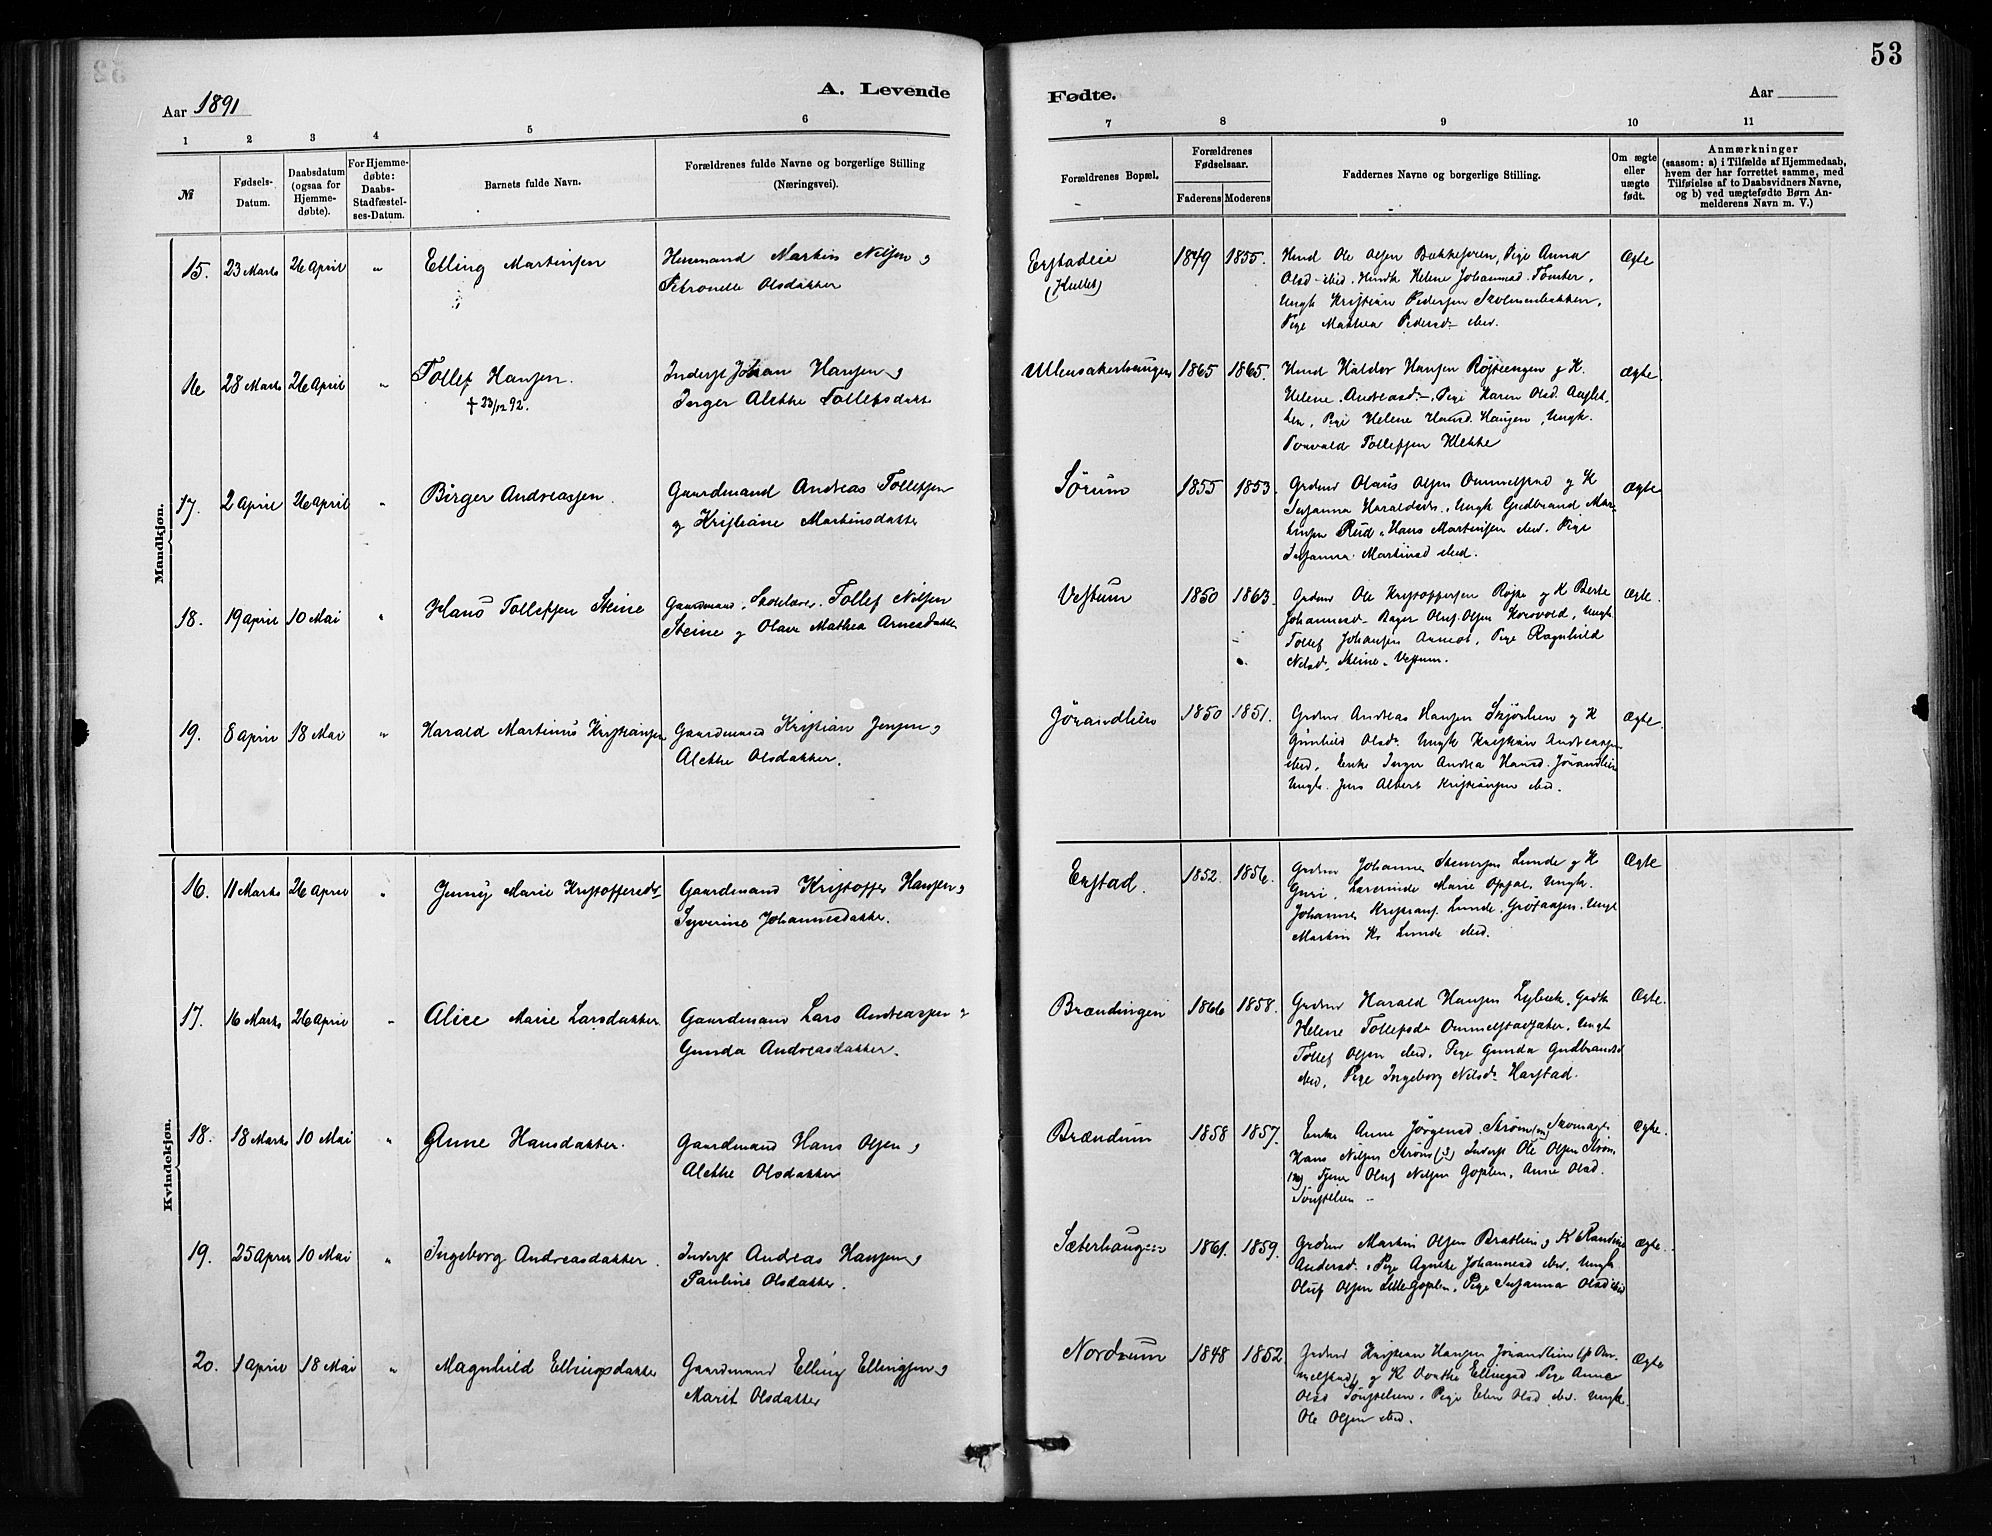 53
Aar 1891
A. Levende
Fødte.
Aar
1 2 3 4 5 6 7 8 9 10 11
№
Fødsels-Datum.
Daabsdatum (ogsaa for Hjemmedøbte).
For Hjemmedøbte: Daabs-Stadfæstelses-Datum.
Barnets fulde Navn.
Forældrenes fulde Navne og borgerlige Stilling (Næringsvei).
Forældrenes Bopæl.
Forældrenes Fødselsaar.
Faderens Moderens
Faddernes Navne og borgerlige Stilling.
Om ægte eller uægte født.
Anmærkninger
(saasom: a) i Tilfælde af Hjemmedaab,
hvem der har forrettet samme, med
Tilføielse af to Daabsvidners Navne,
og b) ved uægtefødte Børn Anmelderens Navn m. V.)
Mandkjøn.
15. 23 Marts 26 April " Elling Martinsen
Husmand Martin Nilsen og
Petronelle Olsdatter
Erstadeie
(Kullet)
1849 1855.
Husmd Ole Olsen Bakkeforen, Pige Anna
Olsd ibid. Helene Johannesd.
Ungk Kristian Pedersen
Pige Mathea Pedersd ibid.
Ægte
16 28 Marts 26 April " Tollef Hansen.
† 23/12 92.
Inderst Johan Hansen og
Inger Alette Tollefsdatt
Ullensakerhaugen 1865 1865.
Husmd Haldor Hansen Røjseengen og K.
Helene Andreasd. Pige Karen Olsd.
Pige Helene Hansd. Haugen, Ungk.
Torvald Tollefsen Klekke
Ægte.
17. 2 April 26 April " Birger Andreassen
Gaardmand Andreas Tollefsen
og Kristiane Martinsdatter
Sørum 1855 1853.
Grdmd Olaus Olsen Ommelstad og K
Susanna Haraldsdr. Ungk Gudbrand Martinsen Rud, Hans Martinsen ibid. Pige
Susanna Martinsd ibid.
Ægte
18. 19 April 10 Mai " Hans Tollefsen Steine
Gaardmand, Skolelærer Tollef Nilsen
Steine og Olava Mathea Arnesdatter
Vestum 1850 1863.
Grdmd Ole Kristoffersen Røjse og K Berte
Johannesd. Bager Oluf Olsen Korsvold, Ungk
Tollef Johansen Pige Ragnhild
Nilsd. Steine. Vestum.
Ægte.
19. 8 April 18 Mai " Harald Martinus Kristiansen
Gaardmand Kristian Jensen og
Alette Olsdatter.
Jørandlien 1850 1851.
Grdmd Andreas Hansen Skjørlien og K
Gunhild Olsd. Ungk Kristian Andreassen
ibid, Enke Inger Andrea Hansd. Jørandlien
Ungk. Jens Albert Kristiansen ibid.
Ægte.
Kvindekjøn.
16. 11 Marts 26 April " Jenny Marie Kristoffersdr
Gaardmand Kristoffer Hansen og
Syverine Johannesdatter.
Erstad. 1852. 1856.
Grdmd Johannes Stenersen Lunde og K
Guri, Lærerinde Marie Opsal, Ungk.
Johannes Kristians. Lunde. Ungk
Martin K. Lunde ibid.
Ægte
17. 16 Marts 26 April " Alice Marie Larsdatter
Gaardmand Lars Andreassen og
Gunda Andreasdatter.
Brændingen 1866 1858.
Grdmd Harald Hansen Lybeck, Grdk
Helene Tollefsdr Ommelstadsæter, Ungk
Tollef Olsen ibid. Pige Gunda Gudbrandsd
ibid, Pige Ingeborg Nilsdr Harstad.
Ægte.
18. 18 Marts 10 Mai " Anne Hansdatter.
Gaardmand Hans Olsen og
Alette Olsdatter
Brændum 1858 1857.
Enke Anne Jørgensd. Strøm, Skomager
Hans Nilsen Strøm, Inderst Ole Olsen Strøm
Tjener Oluf Nilsen Goplen, Anne Olsd.
Tønstelien
Ægte.
19. 25 April 10 Mai " Ingeborg Andreasdatter.
Inderst Andreas Hansen og
Pauline Olsdatter.
Sæterhaugen 1861. 1859.
Grdmd Martin Olsen Bratlien og K Randine
Andersd. Pige Agnethe Johannesd ibid. Ungk
Oluf Olsen Lillegoplen, Pige Susanna Olsd ibid
Ægte.
20. 1 April 18 Mai " Magnhild Ellingsdatter
Gaardmand Elling Ellingsen og
Marit Olsdatter
Nordrum 1848 1852
Grdmd Kristian Hansen Jørandlien (p Ommelstad) og K Dorthe Ellingsd Pige Anne
Olsd Tønstelien. Pige Elen Olsd. ibd. Ungk.
Ole Olsen ibid.
Ægte